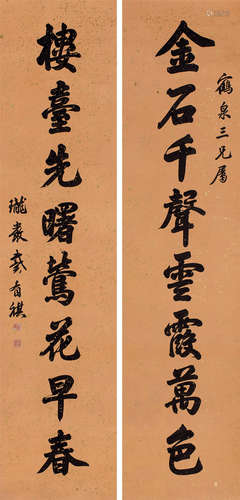 鶴泉三兄屬
金石千聲雲霞萬色
樓臺先曙鶯花早春
戴有祺